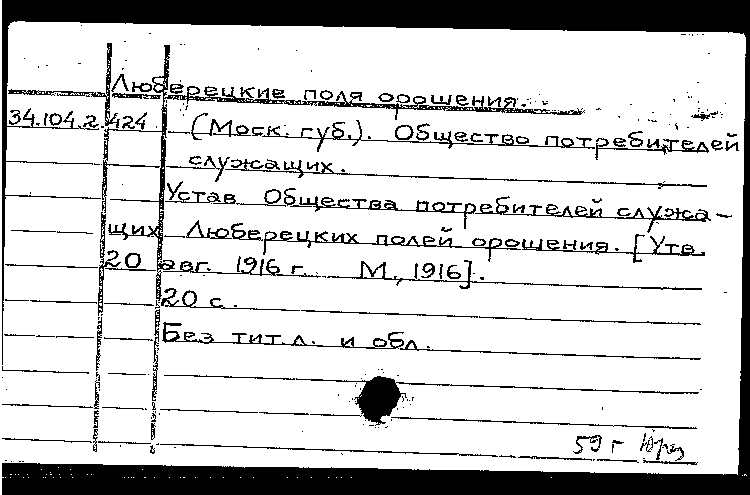 Люберецкие поля орошения.
34.104.2.424 (Моск. губ.). Общество потребителей
служащих.
Устав Общества потребителей служа-
щих Люберецких полей орошения. [Утв.
20 авг. 1916 г. М., 1916].
20 с.
Без тит. л. и обл.
59 г